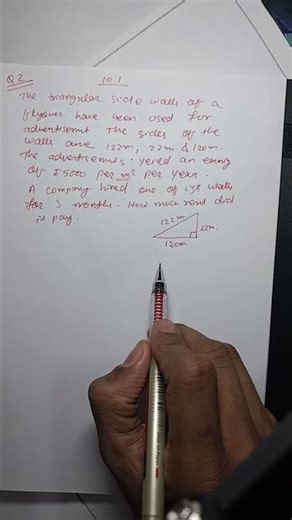 Q2 10.1
The triangular side walls of a
flyover have been used for
advertisment. The sides of the
walls are 122m, 22m & 120m.
The advertisements yered an earng
of ₹5000 per m² per year.
A company hired one of its walls
for 3 months. How much rent did
it pay.
122m
22m.
120m.